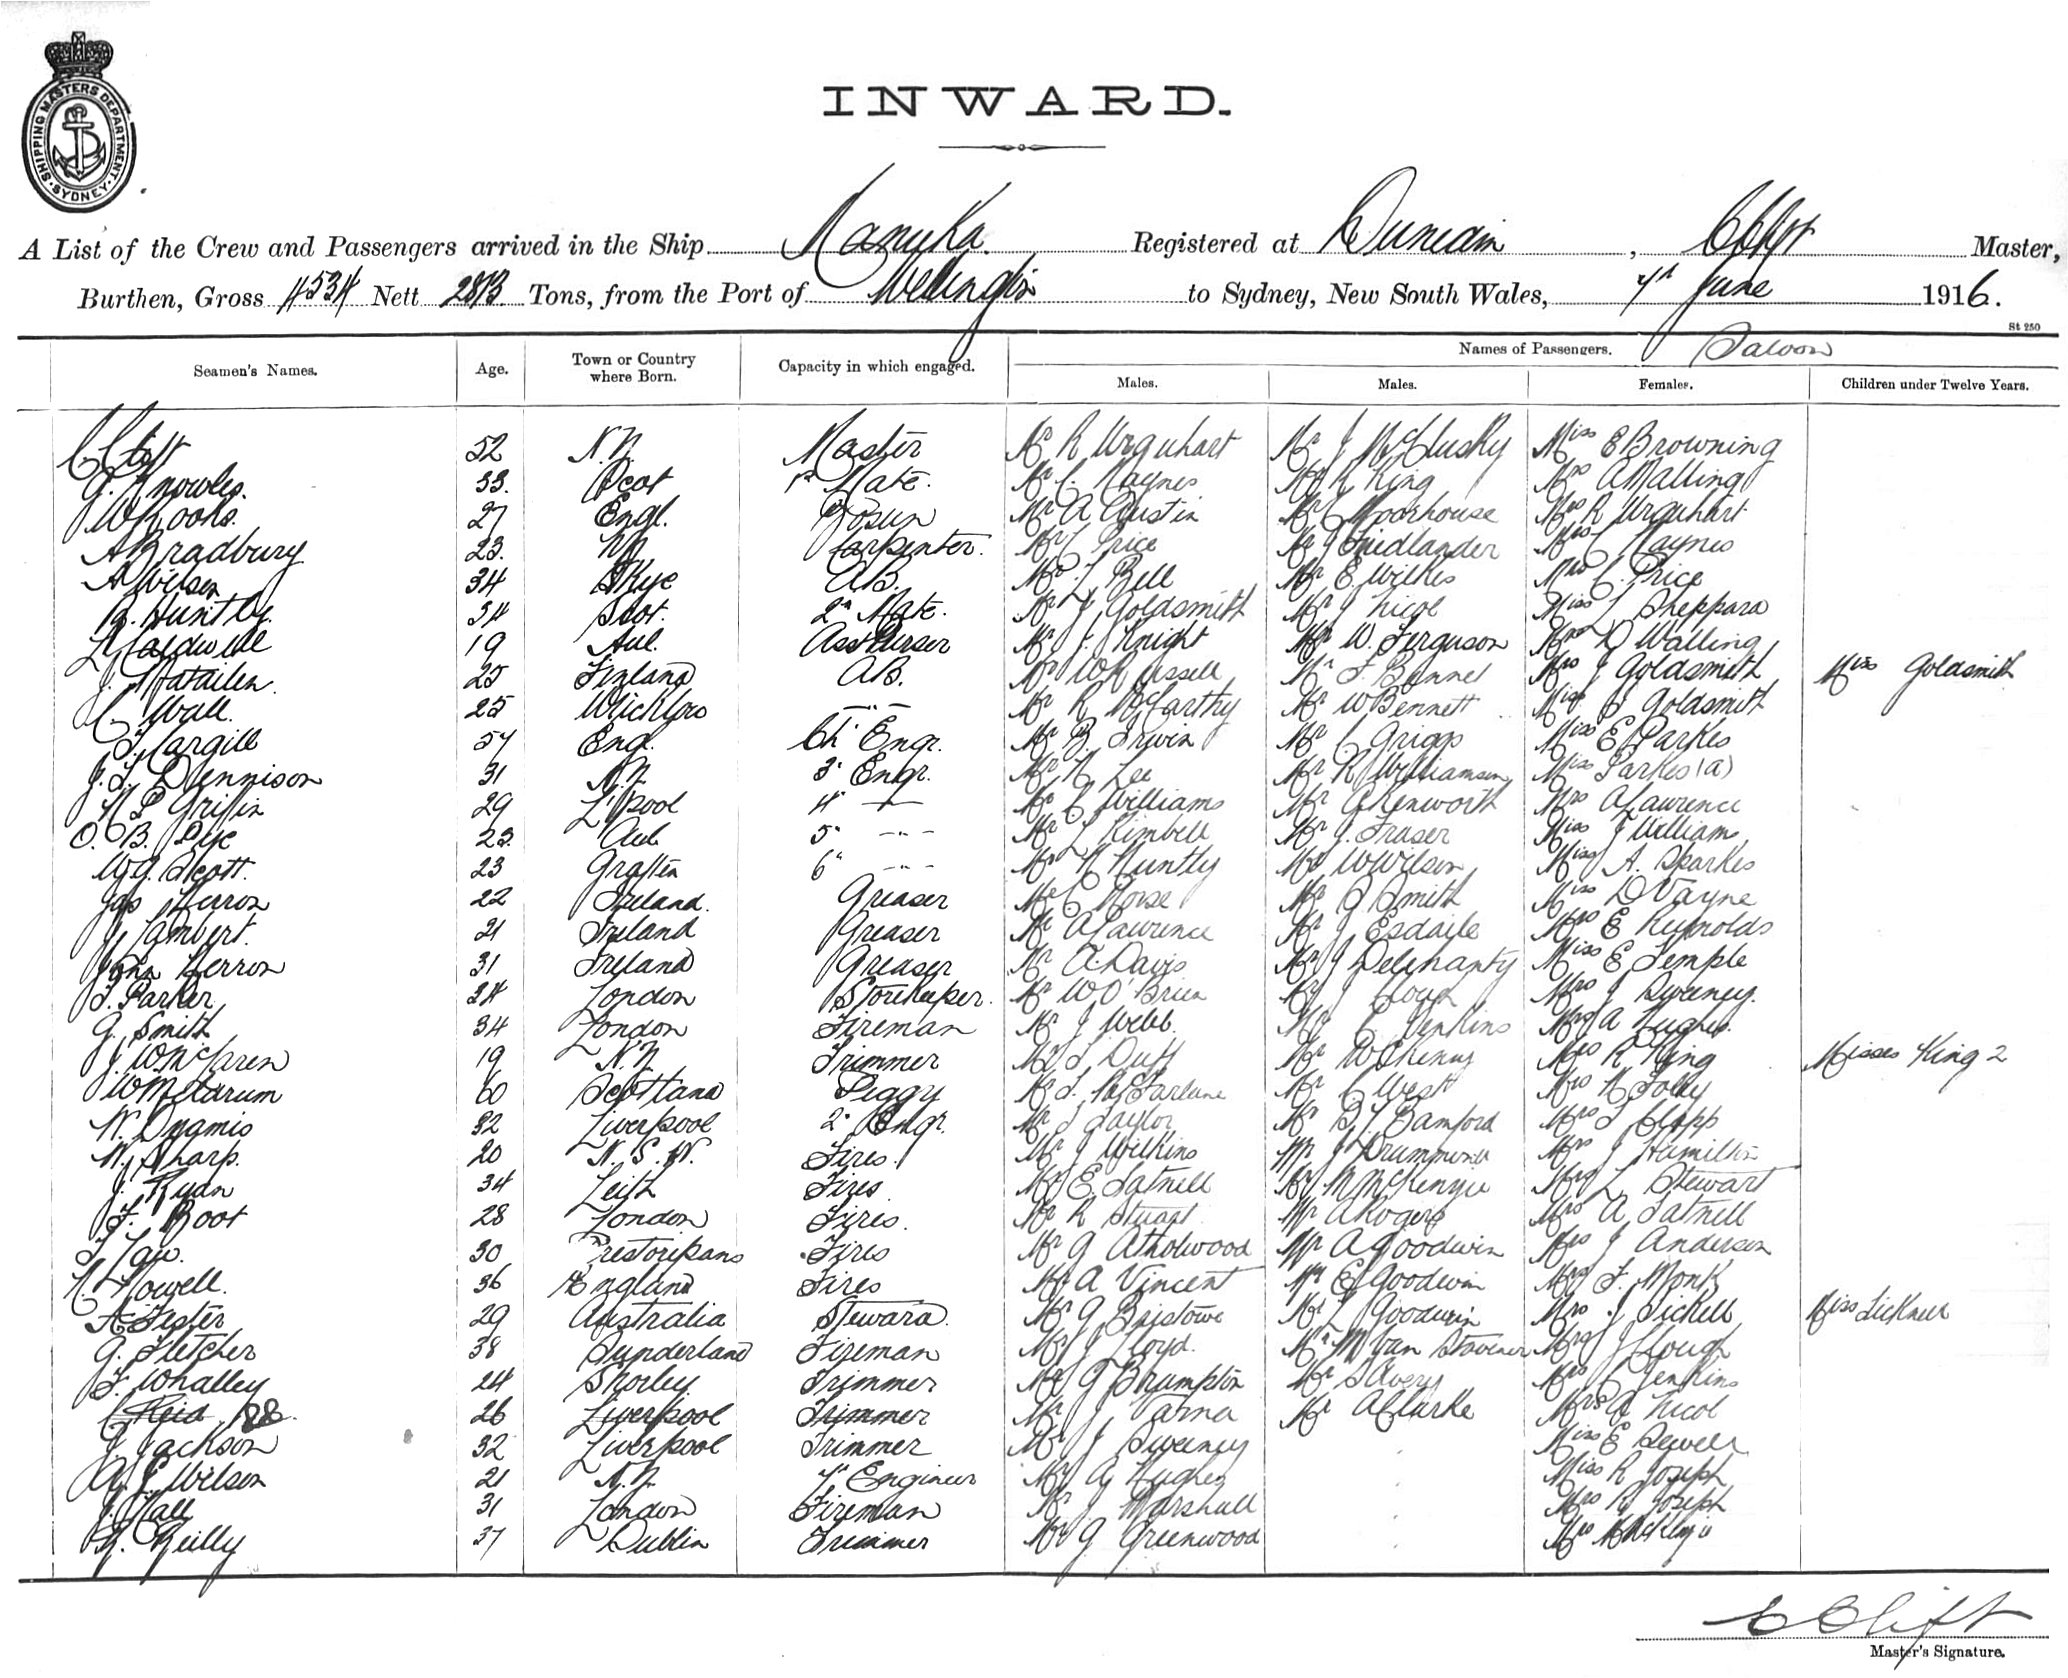 SHIPPING MASTERS DEPARTMENT
SYDNEY
INWARD.
A List of the Crew and Passengers arrived in the Ship Manuka. Registered at Dunedin, C Clift Master,
Burthen, Gross 4534 Nett Tons, from the Port of Wellington to Sydney, New South Wales, June 1916.
St 250
Seamen's Names. Age. Town or Country where Born. Capacity in which engaged. Names of Passengers. Saloon
Males. Males. Females. Children under Twelve Years.
C Clift 52 N.Z. Master Mr R Urquhart Mr J McClusky Miss E Browning
G. Knowles. 33. Scot 1st Mate. Mr C. Haynes Mr R King Mrs A Malling
W Rooks. 27 Engl. Bosun Mr A Austin Mr C Moorhouse Mrs R Urquhart
A Bradbury 23. NZ Carpenter. Mr C Price Mr J Friedlander Mrs C Haynes
A Wilson 34 Skye AB. Mr L Bell Mr E. Wilkes Mrs C. Price
Huntly. 34 Scot. 2nd Mate. Mr J Goldsmith Mr J Nicol Miss L Sheppard
L Caldwell 19 Aul. Asst Purser Mr J. Knight Mr W. Ferguson Mrs Walling
J. 25 Finland AB. Mr W Russell Mr F. Bonnel Mrs J Goldsmith Miss Goldsmith
C Wall. 25 Wicklow -"- Mr R McCarthy Mr W Bennett Miss Goldsmith
Cargill 57 Engl. Ch. Engr. Mr B. Irwin Mr C. Griggs Miss E Parkes
J. L. Dennison 31 N.Z. 3" Engr. Mr H Lee Mr R Williamson Miss Parkes (a)
H P Griffin 29 L'pool 4" -"- Mr C Williams Mr A Kenworth Mrs A Lawrence
O. B. Pye 23. Aul. 5" -"- Mr L Kimbell Mr J. Fraser Miss J Williams
W G. Scott. 23 Grafton 6" -"- Mr H Huntly Mr W Wilson Miss A. Sparkes
Jas Herron 22 Ireland. Greaser Mr C Morse Mr J Smith Miss D Vayne
J Lambert. 21 Ireland Greaser Mr A Lawrence Mr J Esdaile Mrs E Reynolds
John Herron 31 Ireland Greaser Mr A. Davis Mr J Delehanty Miss E Temple
T. Parker 24 London Storekeeper. Mr W O'Brien Mr J Clough Mrs J Sweeney.
G. Smith 34 London Fireman Mr J Webb. Mr C. Jenkins Mrs A Hughes.
J. W. McLaren 19 N.Z Trimmer Mr J Duff Mr W Cheny Mrs R King Misses King 2
60 Scotland Peggy Mr J. McFarlane Mr C West Mrs H Foley
N. 32 Liverpool 2" Engr. Mr J Taylor Mr B J Bamford Mrs J Clapp
N. Sharp. 20 N. S. W. Fires. Mr J Wilkins Mr J Drummond Mrs J Hamilton
J. Ryan 34 Leith Fires. Mr E. Satnell Mr M McKenzie Mrs L Stewart
F. Root 28 London Fires. Mr R Stuart Mr A Rogers Mrs A Satnell
30 Prestonpans Fires Mr G Atholwood Mr A Goodwin Mrs J Anderson
H. Howell. 36 England Fires Mr A Vincent Mr E Goodwin Mrs F. Monk
A Fester 29 Australia Steward. Mr G Bristowe Mr L Goodwin Mrs J Tickell Miss
G. Fletcher 38 Sunderland Fireman Mr J Lloyd. Mr M Van Mrs J Clough
F. Whalley 24 Trimmer Mr G Brampton Mr S Avery Mrs C Jenkins
C Reid 26 Liverpool Trimmer Mr J Mr A Clarke Mrs A Nicol
J. Jackson 32 Liverpool Trimmer Mr J Sweeney Miss E Sewell
A. E. Wilson 21 N.Z. 7" Engineer Mr A Hughes Miss R Joseph
J. Hall 31 London Fireman Mr J Marshall Mrs R Joseph
Reilly 37 Dublin Trimmer Mr G Greenwood Mrs McKenzie
C Clift
Master's Signature.